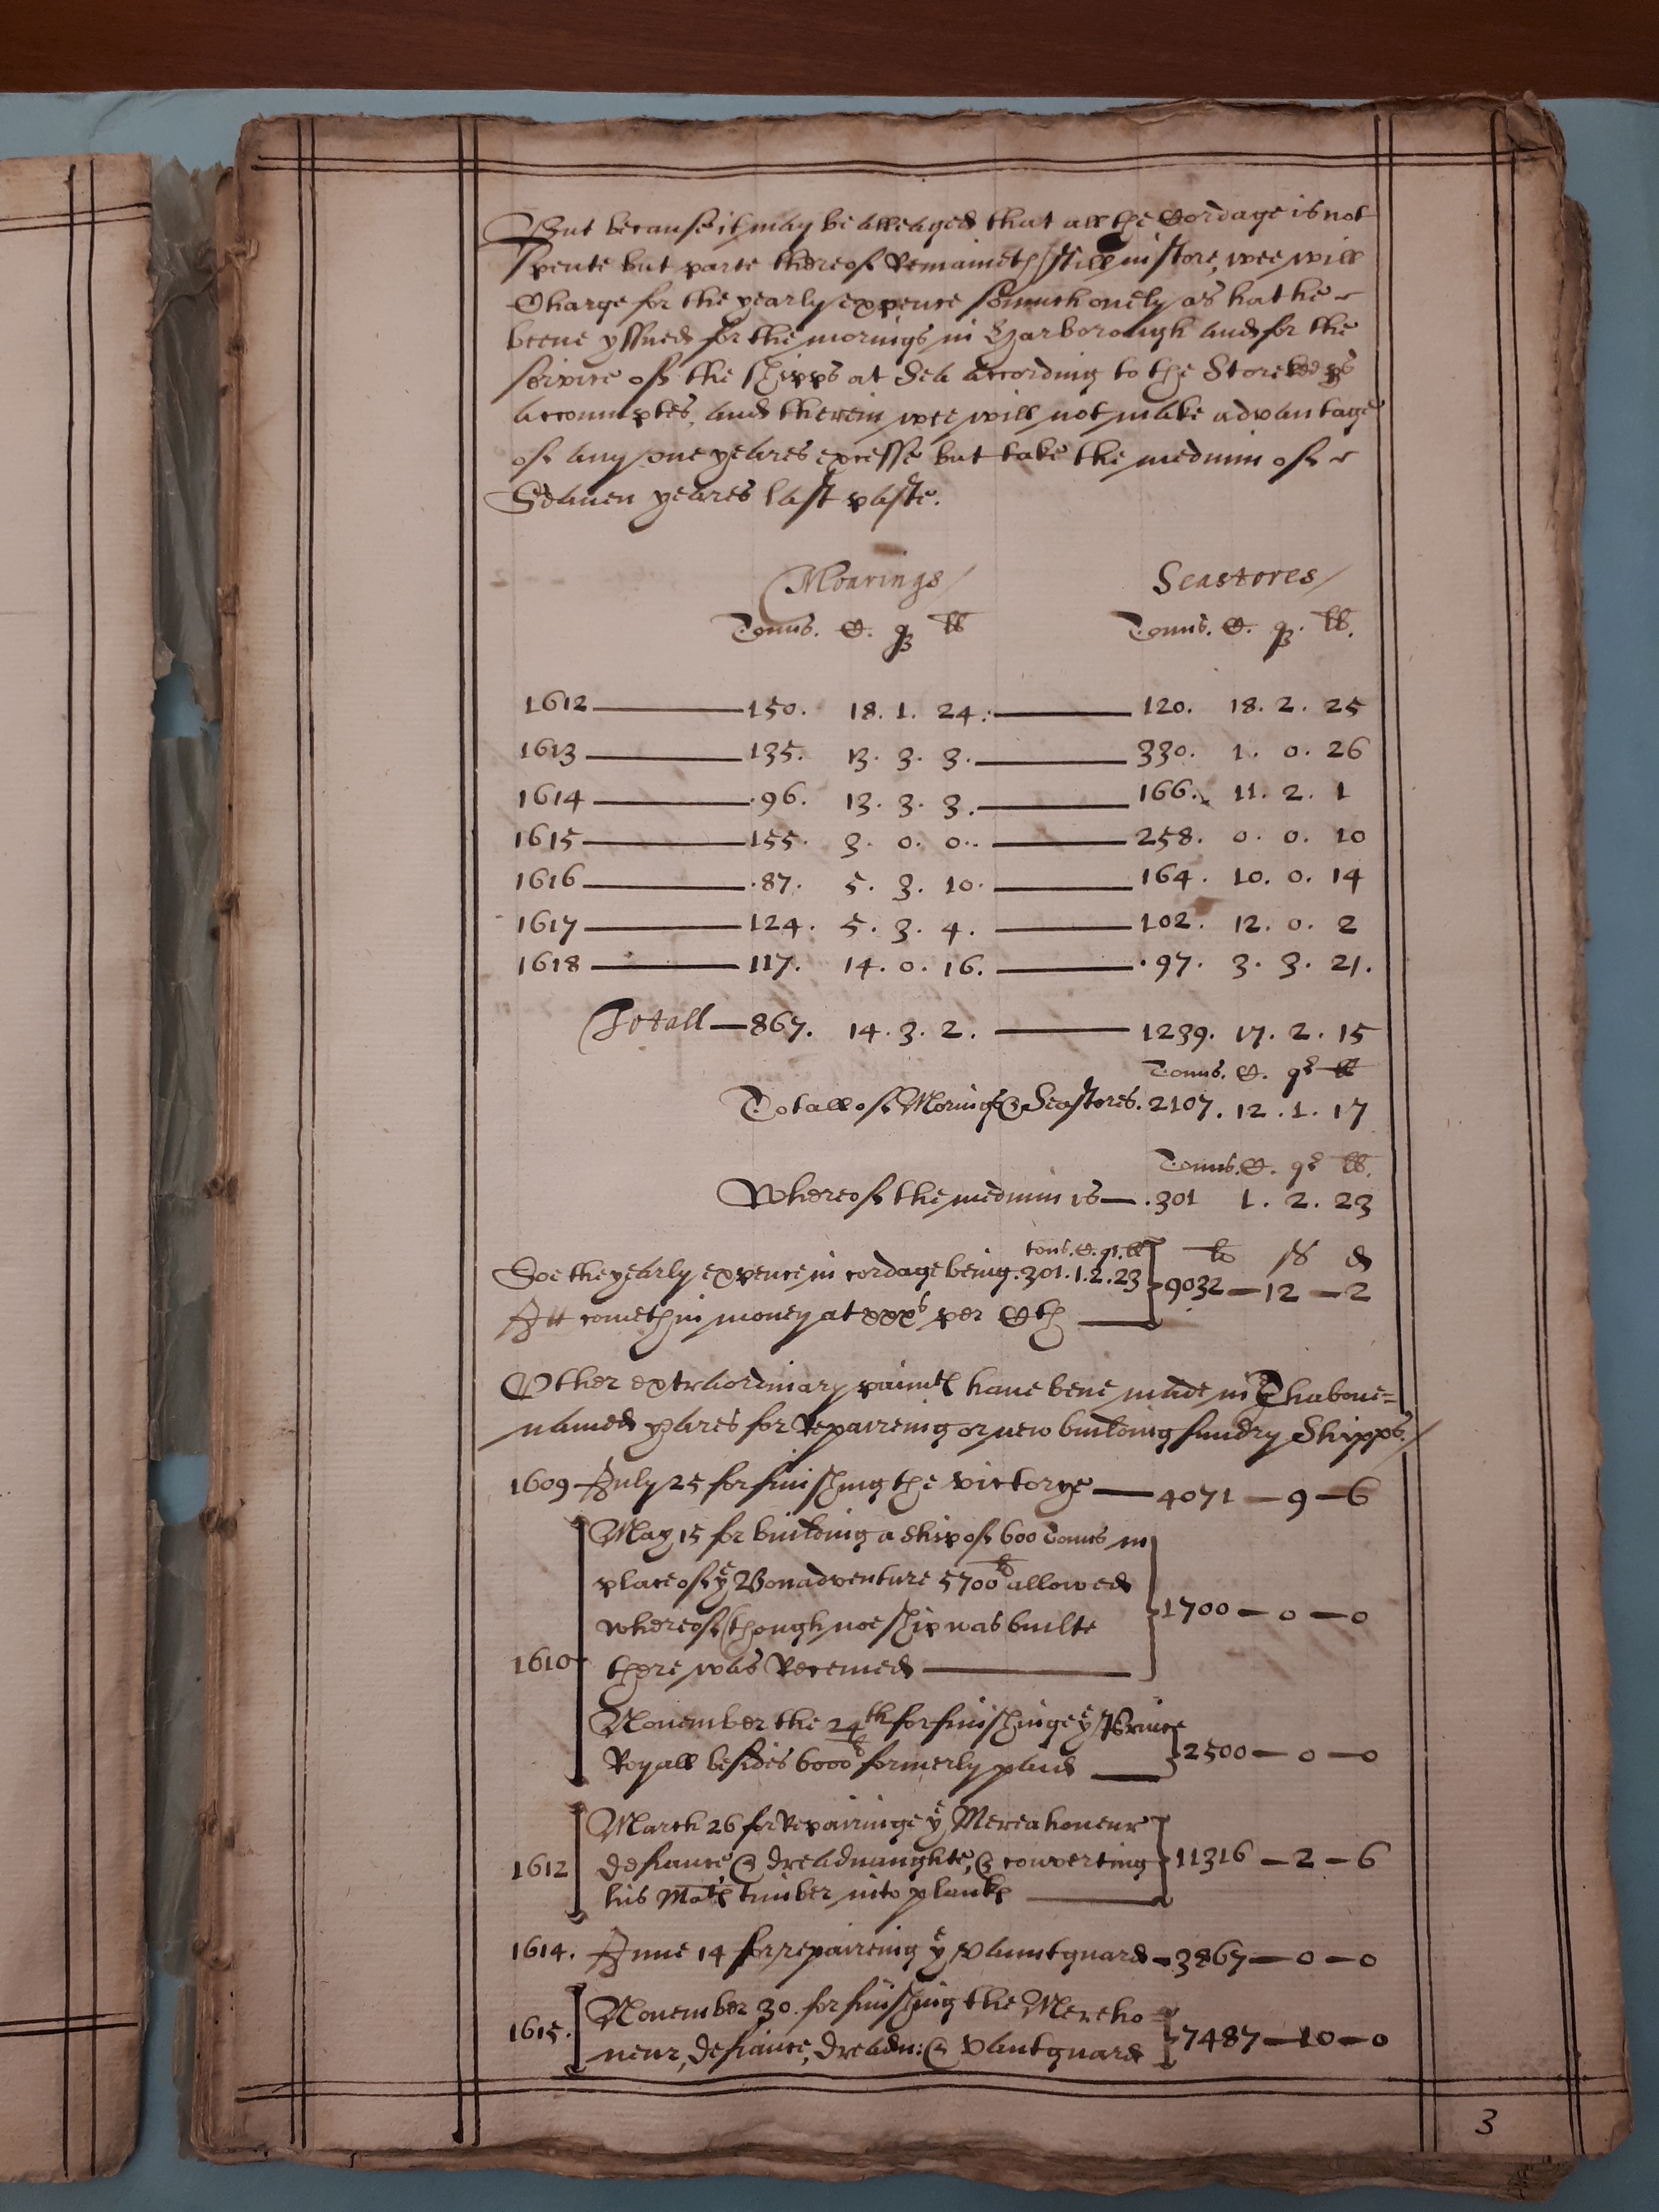 But because it may be alleaged that all the Cordage is not
spente but parte thereof Remaineth still in store, wee will
Charge for the yearly expence somuch onely as hathe
beene yssued for the morings in Harborough and for the
service of the shipps at Sea according to the Storekeeps
accoumptes, and therein wee will not make advantage
of any one yeares excesse but take the medium of
Seauen yeares last paste.
Moarings Seastores
Tonns. C. q lb Tonns. C. q. lb.
1612 150. 18. 1. 24. 120. 18. 2. 25
1613 135. 13. 3. 3. 330. 1. 0. 26
1614 .96. 13. 3. 3. 166. 11. 2. 1
1615 155. 3. 0. 0. 258. 0. 0. 10
1616 .87. 5. 3. 10. 164. 10. 0. 14
1617 124. 5. 3. 4. 102. 12. 0. 2
1618 117. 14. 0. 16. .97. 3. 3. 21.
Totall 867. 14. 3. 2. 1239. 17. 2. 15
Tonns. C. qr lb
Totall of Morings & Seastores. 2107. 12. 1. 17
Tonns. C. qr lb.
Whereof the medium is .301 1. 2. 23
tons. C. qr. lb li s d
Soe the yearly expence in cordage being .301. 1. 2. 23 9032 - 12 - 2
Itt cometh in money at xxxs per Cth
Other extraordinary paimts haue bene made in Thaboue=
named yeares for Repaireing or new building sundry Shipps.
1609 July 25 for finishing the Victorye 4071 - 9 - 6
May 15 for building a ship of 600 Tonns in
place of ye Bonadventure 5700li allowed
whereof though noe ship was builte 1700 - 0 - 0
1610 there was Receiued
Nouember the 24th for finishinge ye Prince
Royall besides 6000li formerly paid 2500 - 0 - 0
March 26 for Repairinge ye Mereahoneur
1612 defiance & dreadnaughte, & converting 11316 - 2 - 6
his Mats timber into planks
1614. June 14 for repaireing ye Vauntguard 3867 - 0 - 0
Nouember 30. for finishing the Mereho=
1615. neur, defiance, dreadn: & Vantguard 7487 - 10 - 0
3